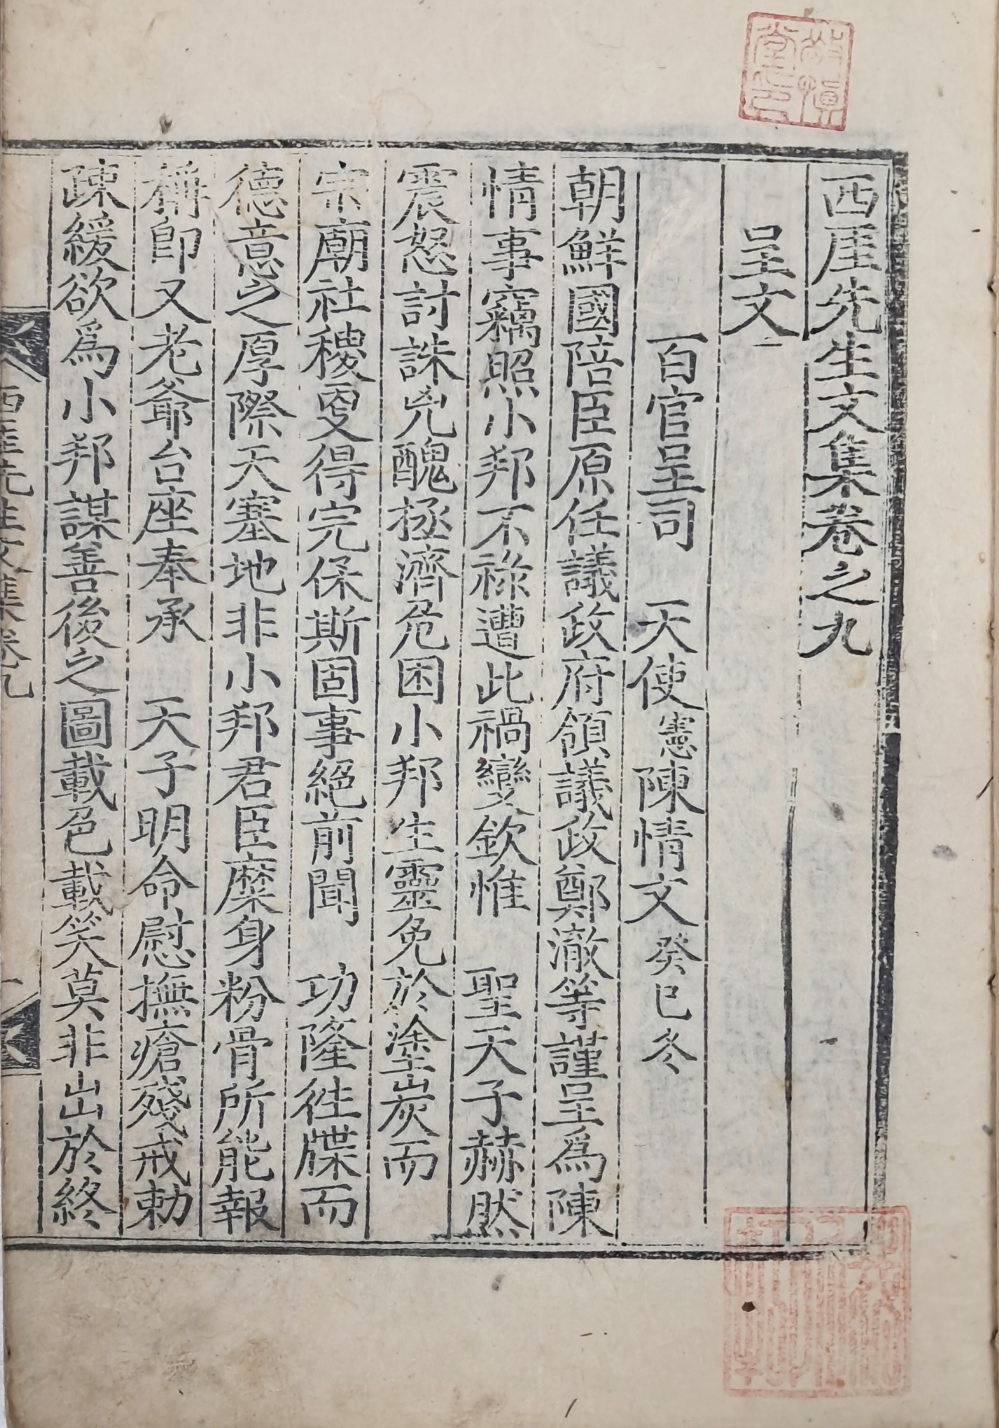 西厓先生文集卷之九
呈文
百官呈司 天使憲陳情文癸巳冬
朝鮮國陪臣原任議政府領議政鄭澈等謹呈爲陳
情事竊照小邦不祿遭此禍變欽惟 聖天子赫然
震怒討誅兇醜拯濟危困小邦生靈免於塗炭而
宗廟社稷更得完保斯固事絕前聞 功隆徃牒而
德意之厚際天塞地非小邦君臣糜身粉骨所能報
稱卽又老爺台座奉承 天子明命慰撫瘡殘戒勅
疎緩欲爲小邦謀善後之圖載色載笑莫非出於終
西厓先生文集卷九